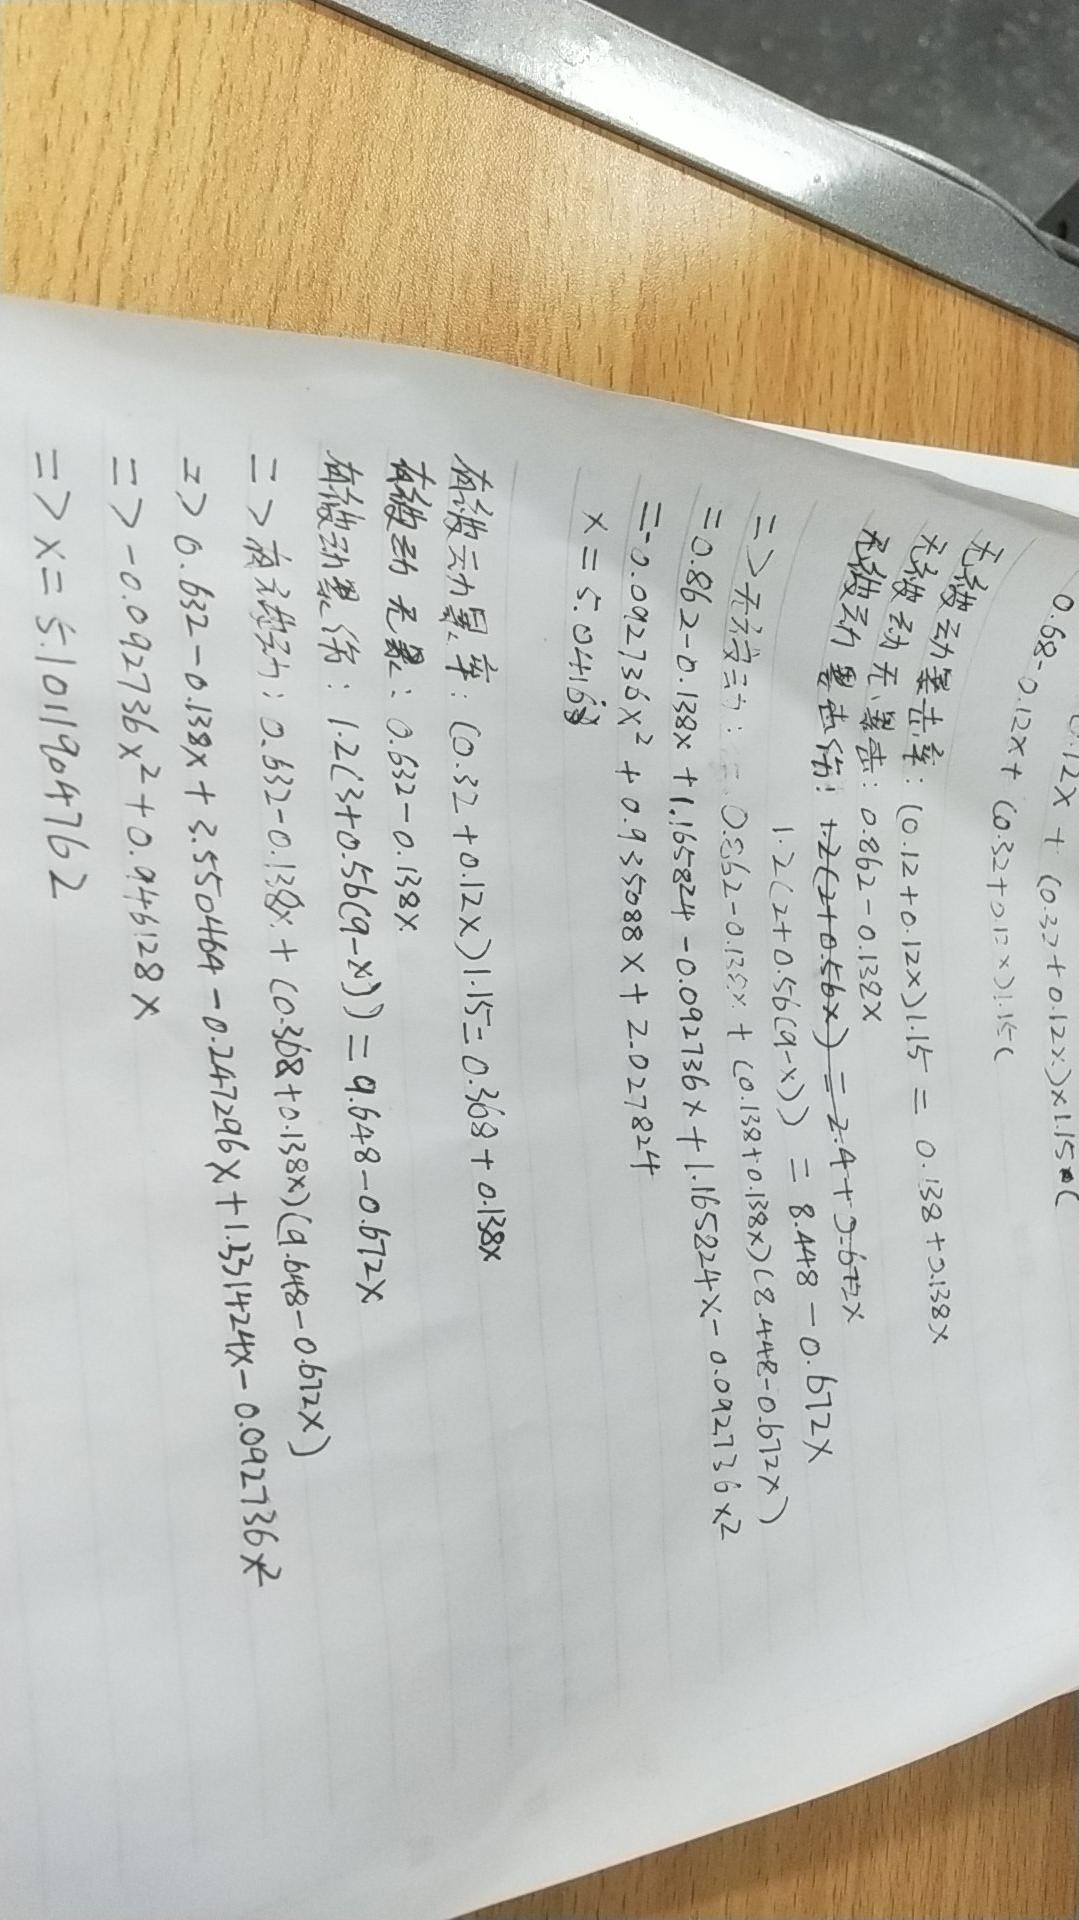 0.12x + (0.32+0.12x)×1.15(
0.68-0.12x + (0.32+0.12x)1.15(
无被动暴击率: (0.12+0.12x)1.15 = 0.138+0.138x
无被动无暴击: 0.862-0.138x
无被动暴击伤: 1.2(2+0.56x) = 2.4+0.672x
1.2(2+0.56(9-x)) = 8.448-0.672x
=> 无被动: = 0.862-0.138x + (0.138+0.138x)(8.448-0.672x)
= 0.862-0.138x + 1.165824-0.092736x + 1.165824x-0.092736x²
= -0.092736x² + 0.935088x + 2.027824
x = 5.04168
有被动暴率: (0.32+0.12x)1.15 = 0.368+0.138x
有被动无暴: 0.632-0.138x
有被动暴伤: 1.2(3+0.56(9-x)) = 9.648-0.672x
=> 有被动: 0.632-0.138x + (0.368+0.138x)(9.648-0.672x)
=> 0.632-0.138x + 3.550464-0.247296x + 1.331424x-0.092736x²
=> -0.092736x² + 0.946128x
=> x = 5.1011904762